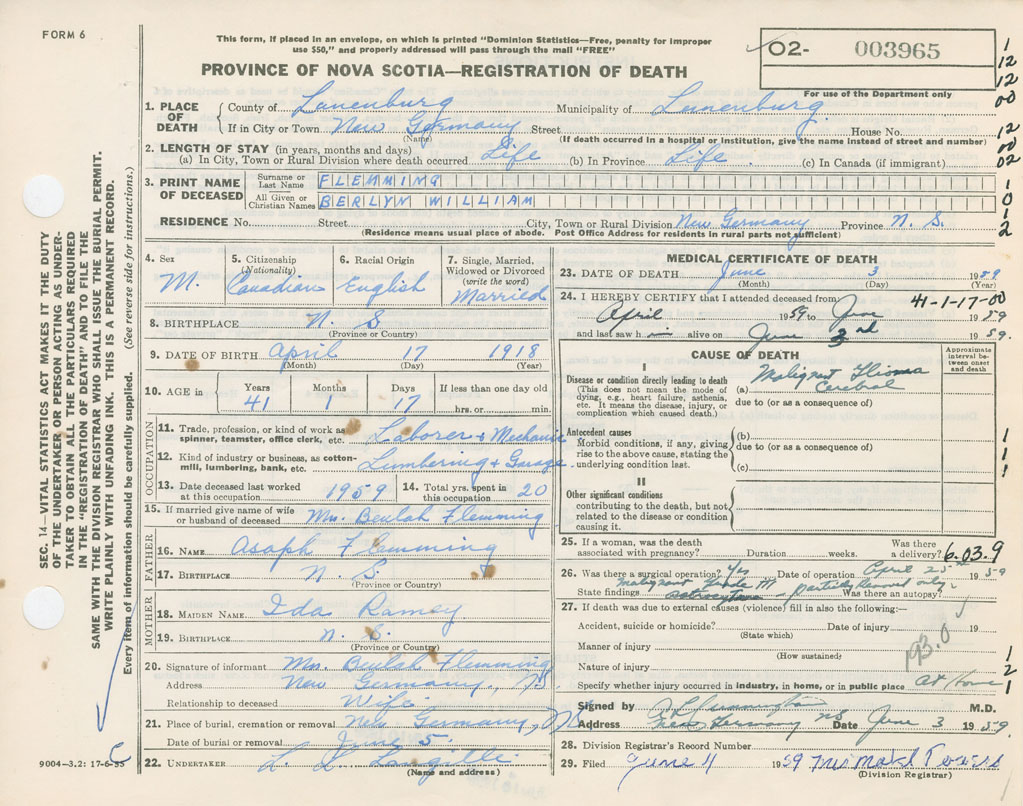 FORM 6
This form, if placed in an envelope, on which is printed "Dominion Statistics—Free, penalty for improper
use $50," and properly addressed will pass through the mail "FREE"
PROVINCE OF NOVA SCOTIA—REGISTRATION OF DEATH
O2- 003965
For use of the Department only
1
12
12
00
12
00
02
1
0
1
2
SEC. 14—VITAL STATISTICS ACT MAKES IT THE DUTY
OF THE UNDERTAKER, OR PERSON ACTING AS UNDER-
TAKER TO OBTAIN ALL THE PARTICULARS REQUIRED
IN THE "REGISTRATION OF DEATH" AND TO FILE THE
SAME WITH THE DIVISION REGISTRAR WHO SHALL ISSUE THE BURIAL PERMIT.
WRITE PLAINLY WITH UNFADING INK. THIS IS A PERMANENT RECORD.
Every item of information should be carefully supplied. (See reverse side for instructions.)
1. PLACE OF DEATH County of Lunenburg Municipality of Lunenburg
If in City or Town New Germany Street House No.
(Name) (If death occurred in a hospital or institution, give the name instead of street and number)
2. LENGTH OF STAY (in years, months and days)
(a) In City, Town or Rural Division where death occurred Life (b) In Province Life (c) In Canada (if immigrant)
3. PRINT NAME OF DECEASED Surname or Last Name FLEMMING
All Given or Christian Names BERLYN WILLIAM
RESIDENCE No. Street City, Town or Rural Division New Germany Province N. S.
(Residence means usual place of abode. Post Office Address for residents in rural parts not sufficient)
4. Sex M.
5. Citizenship (Nationality) Canadian
6. Racial Origin English
7. Single, Married, Widowed or Divorced (write the word) Married
8. BIRTHPLACE N. S
(Province or Country)
9. DATE OF BIRTH April 17 1918
(Month) (Day) (Year)
10. AGE in Years Months Days If less than one day old
41 1 17 hrs. or min.
OCCUPATION
11. Trade, profession, or kind of work as spinner, teamster, office clerk, etc. Laborer + Mechanic
12. Kind of industry or business, as cotton-mill, lumbering, bank, etc. Lumbering + Garage
13. Date deceased last worked at this occupation 1959 14. Total yrs. spent in this occupation 20
15. If married give name of wife or husband of deceased Mrs. Beulah Flemming
FATHER
16. NAME Asaph Flemming
17. BIRTHPLACE N. S
(Province or Country)
MOTHER
18. MAIDEN NAME Ida Ramey
19. BIRTHPLACE N. S.
(Province or Country)
20. Signature of informant Mrs. Beulah Flemming
Address New Germany, NS.
Relationship to deceased Wife
21. Place of burial, cremation or removal New Germany, NS
Date of burial or removal June 5.
22. UNDERTAKER L. L. Langille
(Name and address)
9004—3.2: 17-6-55
MEDICAL CERTIFICATE OF DEATH
23. DATE OF DEATH June 3 1959
(Month) (Day) (Year)
24. I HEREBY CERTIFY that I attended deceased from 41-1-17-00
April 1959 to June 1959
and last saw him alive on June 3rd 1959.
CAUSE OF DEATH
Approximate interval between onset and death
I
Disease or condition directly leading to death
(This does not mean the mode of dying, e.g., heart failure, asthenia, etc. It means the disease, injury, or complication which caused death.)
(a) Malignant Glioma
Cerebral
due to (or as a consequence of)
Antecedent causes
Morbid conditions, if any, giving rise to the above cause, stating the underlying condition last.
(b)
due to (or as a consequence of)
(c)
1
1
1
II
Other significant conditions
contributing to the death, but not related to the disease or condition causing it.
25. If a woman, was the death associated with pregnancy? Duration weeks. Was there a delivery? 6.03.9
26. Was there a surgical operation? Yes Date of operation April 25th 1959
State findings Malignant Grade III astrocytoma - partially removed only. Was there an autopsy?
27. If death was due to external causes (violence) fill in also the following:—
Accident, suicide or homicide? Date of injury 19
(State which)
Manner of injury
(How sustained)
193.0
Nature of injury
Specify whether injury occurred in industry, in home, or in public place At Home
1
2
1
Signed by M.D.
Address New Germany NS Date June 3 1959
28. Division Registrar's Record Number
29. Filed June 4 1959
(Division Registrar)